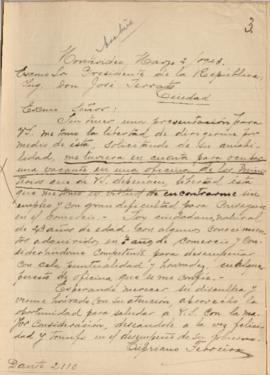 3
Archivo
Montevideo Marzo 2/923.
Excmo Sr Presidente de la República
Ing. Don José Serrato
Ciudad
Excmo Señor:
Sin tener una presentación para
V.E. me tomo la libertad de dirigirme por
medio de esta, solicitando de su amabi-
lidad, me tuviera en cuenta para ocupar
una vacante en una oficina de los Minis-
terios que de V.E. dependen, libertad esta
que me tomo en virtud de encontrarme sin
empleo y con gran dificultad para conseguir
en el comercio. Soy ciudadano natural
de 43 años de edad con algunos conocimien-
tos adquiridos en años de comercio y con-
siderándome competente para desempeñar
con toda puntualidad y honradez cualquier
puesto de oficina que se me confie.
Esperando merecer su disculpa y
verme honrado con su atención aprovecho la
oportunidad para saludar a V.E. con la ma-
yor consideración, deseándole a la vez felici-
dad y triunfo en el desempeño de su gobierno.
Cipriano Ferreira
Dante 2110